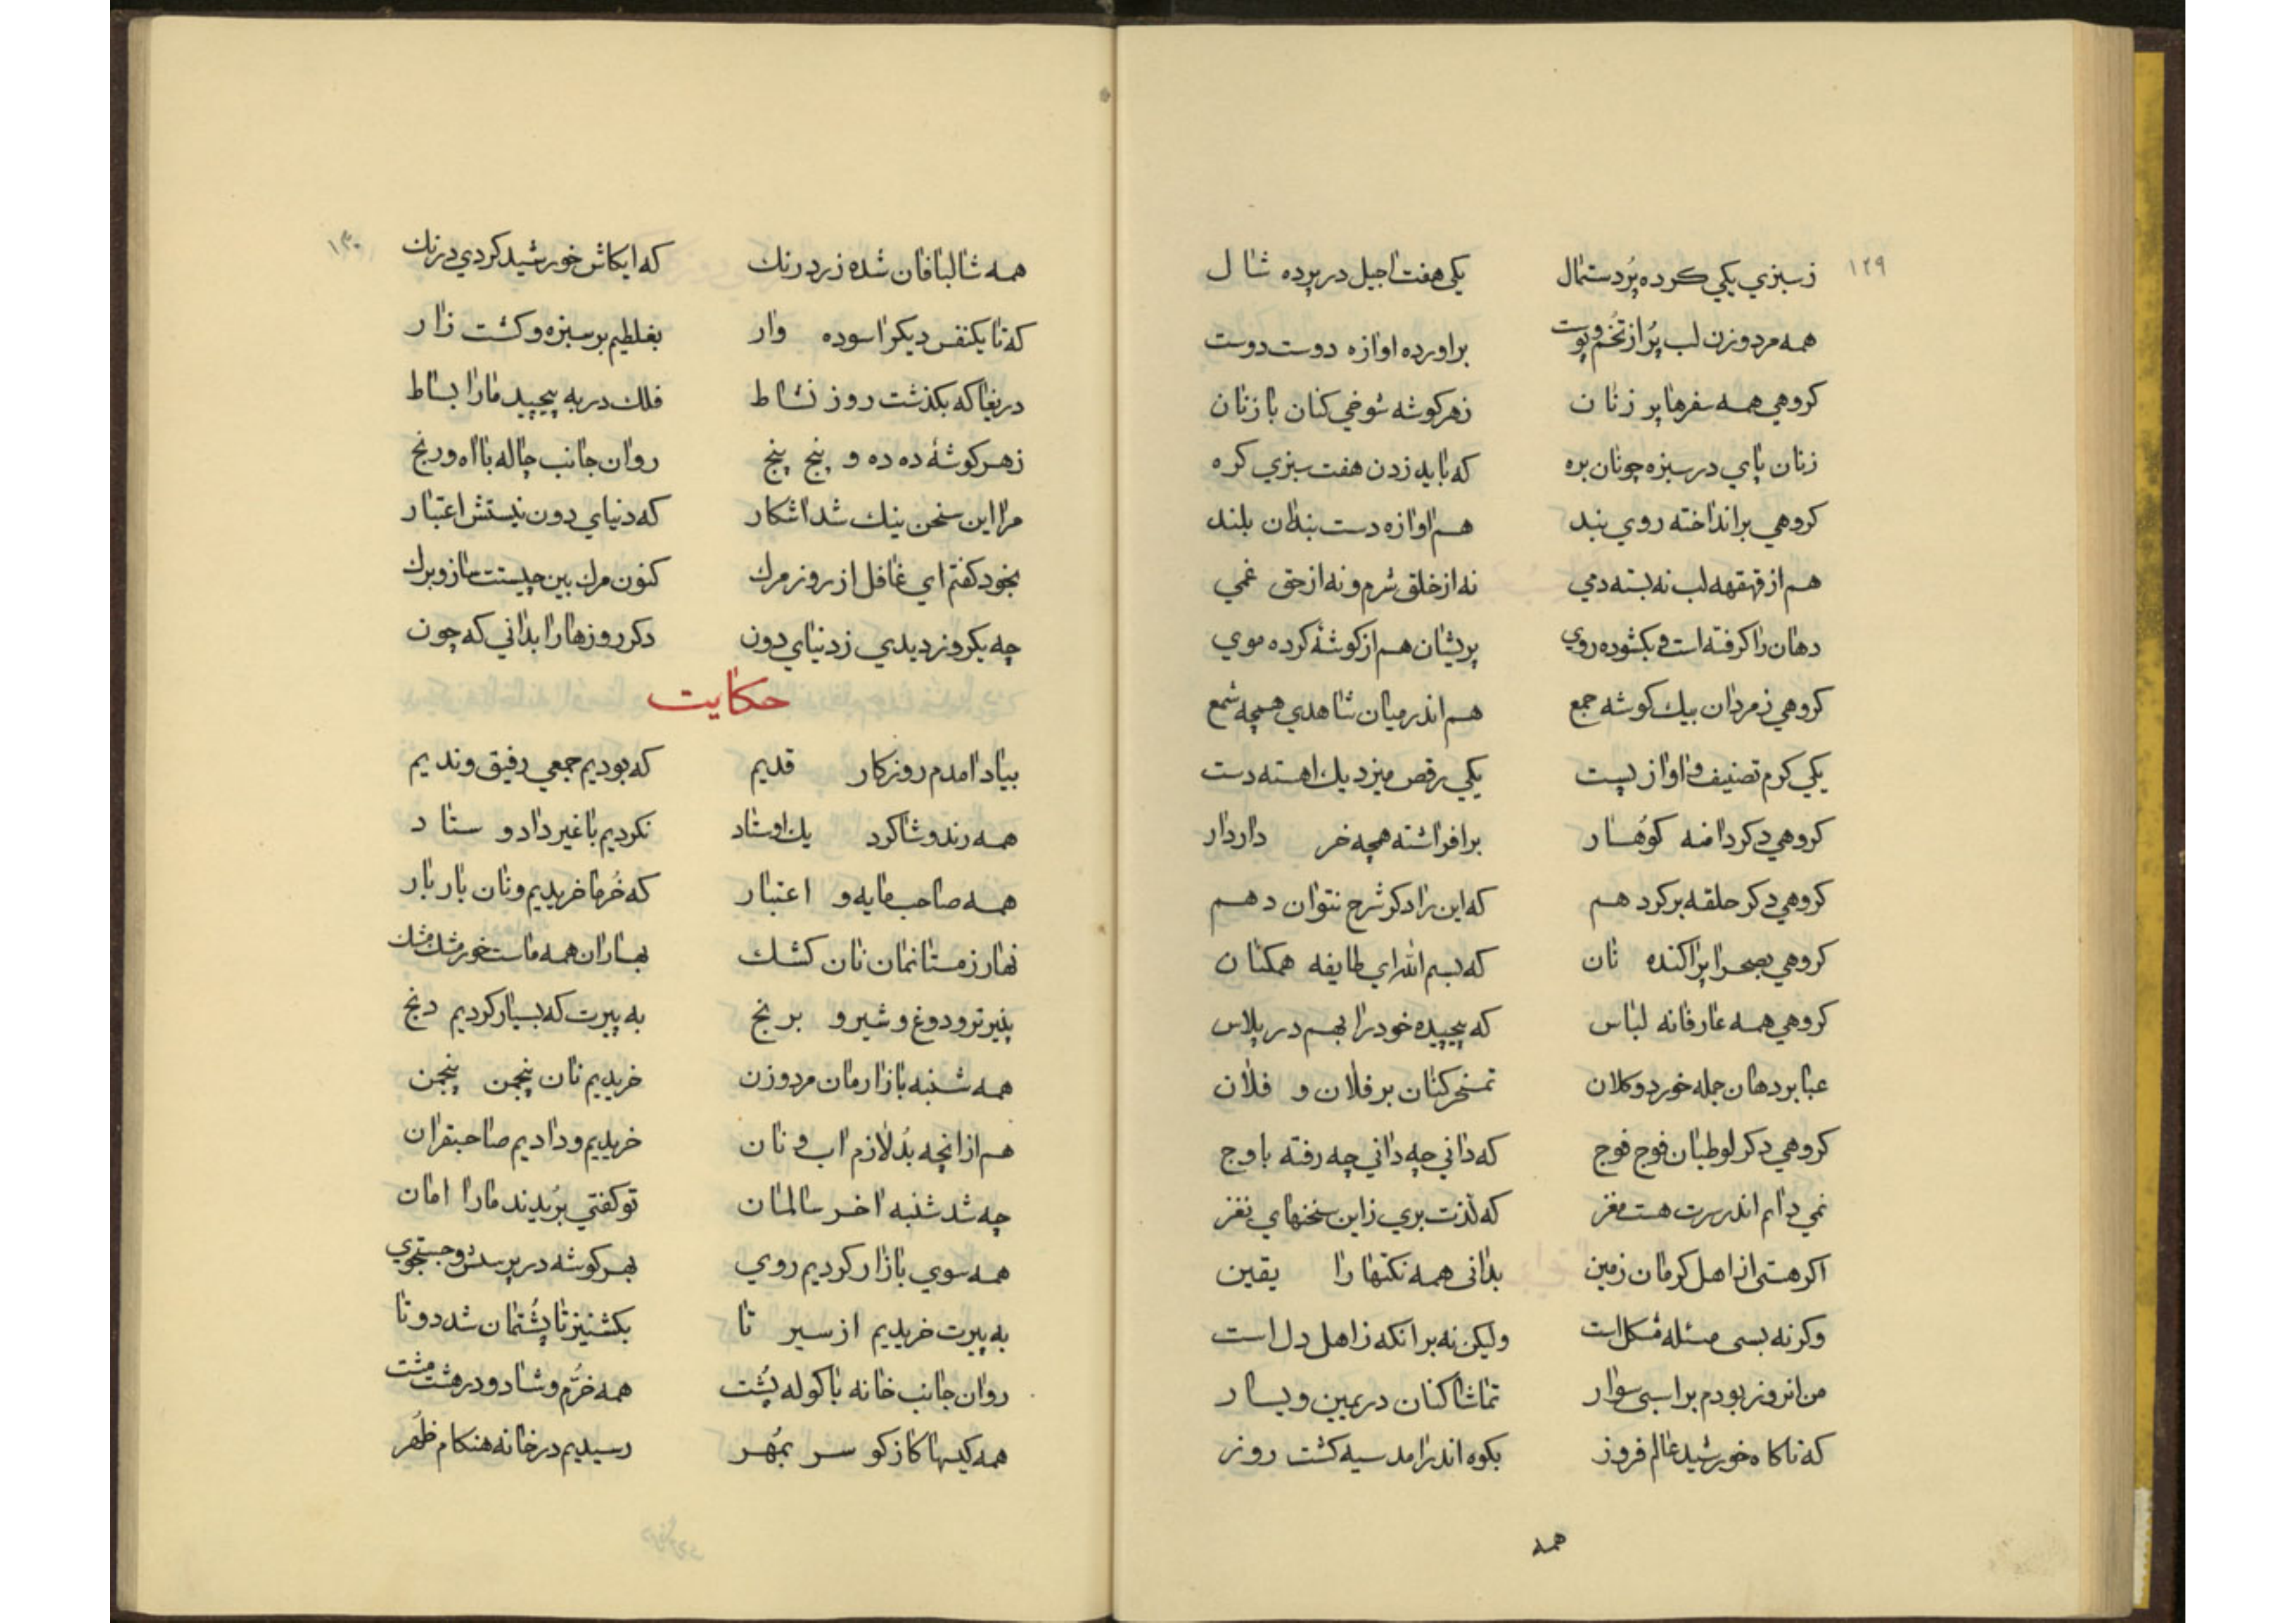 ۱۲۹
ز سبزي يكي كرده پُر دستمال يكي هفت اجيل در پرده شال
همه مرد و زن لب پُر از تخم و پوست براورده اوازه دوست دوست
كروهي همه سفرها پر ز نان زهر كوشه شوخي كنان با زنان
زنان پاي در سبزه چونان بره كه بايد زدن هفت سبزي كره
كروهي برانداخته روي بند هم اوازه دست بندان بلند
هم از قهقهه لب نه بسته دمي نه از خلق شرم و نه از حق غمي
دهان را كرفته است و بكشوده روي پريشان هم از كوشۀ كرده موي
كروهي ز مردان بيك كوشه جمع هم اندر ميان شاهدي همچه شمع
يكي كرم تصنيف و اواز پست يكي رقص ميزد يك اهسته دست
كروهي دكر دامنه كوُهسار برافراشته همچه خر داردار
كروهي دكر حلقه بر كرد هم كه اين را دكر شرح نتوان دهم
كروهي بصحرا پراكنده نان كه بسم الله اي طايفه همكنان
كروهي همه عارفانه لباس كه پيچيده خود را بهم در پلاس
عبا بر دهان جمله خورد و كلان تمسخر كنان بر فلان و فلان
كروهي دكر لوطيان فوج فوج كه داني چه داني چه رفته باوج
نمي دانم اندر سرت هست مغز كه لذت بري زاين سخنهاي نغز
اكر هستي از اهل كرمان زمين بداني همه نكتها را يقين
وكرنه بسي مسئله مشكل است وليكن نه بر انكه ز اهل دل است
من انروز بودم بر اسبي سوار تماشا كنان در يمين و يسار
كه ناكاه خورشيد عالم فروز بكوه اندر امد سيه كشت روز
همه
۱۳۰
همه شالبافان شده زرد رنك كه ايكاش خورشيد كردي درنك
كه تا يكنفس ديكر اسوده وار بغلطيم بر سبزه و كشت زار
دريغا كه بكذشت روز نشاط فلك در به پيچيد ما را بساط
زهر كوشۀ ده ده و پنج پنج روان جانب چاله با اه و رنج
مرا اين سخن نيك شد اشكار كه دنياي دون نيستش اعتبار
بخود كفتم اي غافل از روز مرك كنون مرك بين چيستت ساز و برك
چه يكروز ديدي ز دنياي دون دكر روزها را بداني كه چون
حكايت
بياد امدم روزكار قديم كه بوديم جمعي رفيق و نديم
همه رند و شاكرد يك اوستاد نكرديم با غير داد و ستاد
همه صاحب مايه و اعتبار كه خُرما خريديم و نان بار بار
نهار زمستانمان نان كشك بهاران همه ماست خور مشك مشك
پنير تر و دوغ و شير و برنج به پيرت كه بسيار كرديم دنج
همه شنبه بازارمان مرد و زن خريديم نان پنجمن پنجمن
هم از انچه بُد لازم اب و نان خريديم و داديم صاحبقران
چه شد شنبه اخر سالمان تو كفتي بُريدند ما را امان
همه سوي بازار كرديم روي بهر كوشه در پرسش و جستجوي
به پيرت خريديم از سير تا بكشنيز تا پُشتمان شد دوتا
روان جانب خانه با كوله پُشت همه خرّم و شاد و در مشت مشت
همه كيسها كاز كو سر بمُهر رسيديم در خانه هنكام ظُهر